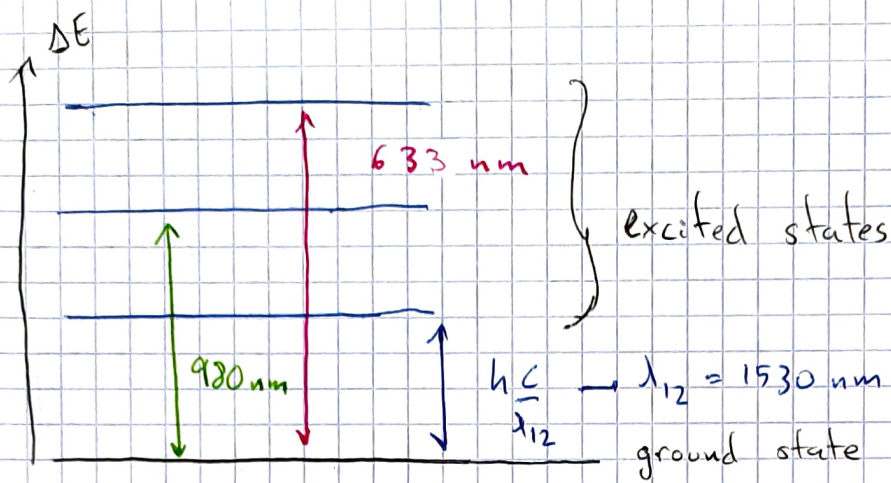 ΔE
633 nm
excited states
980 nm
h c/λ₁₂ → λ₁₂ = 1530 nm
ground state